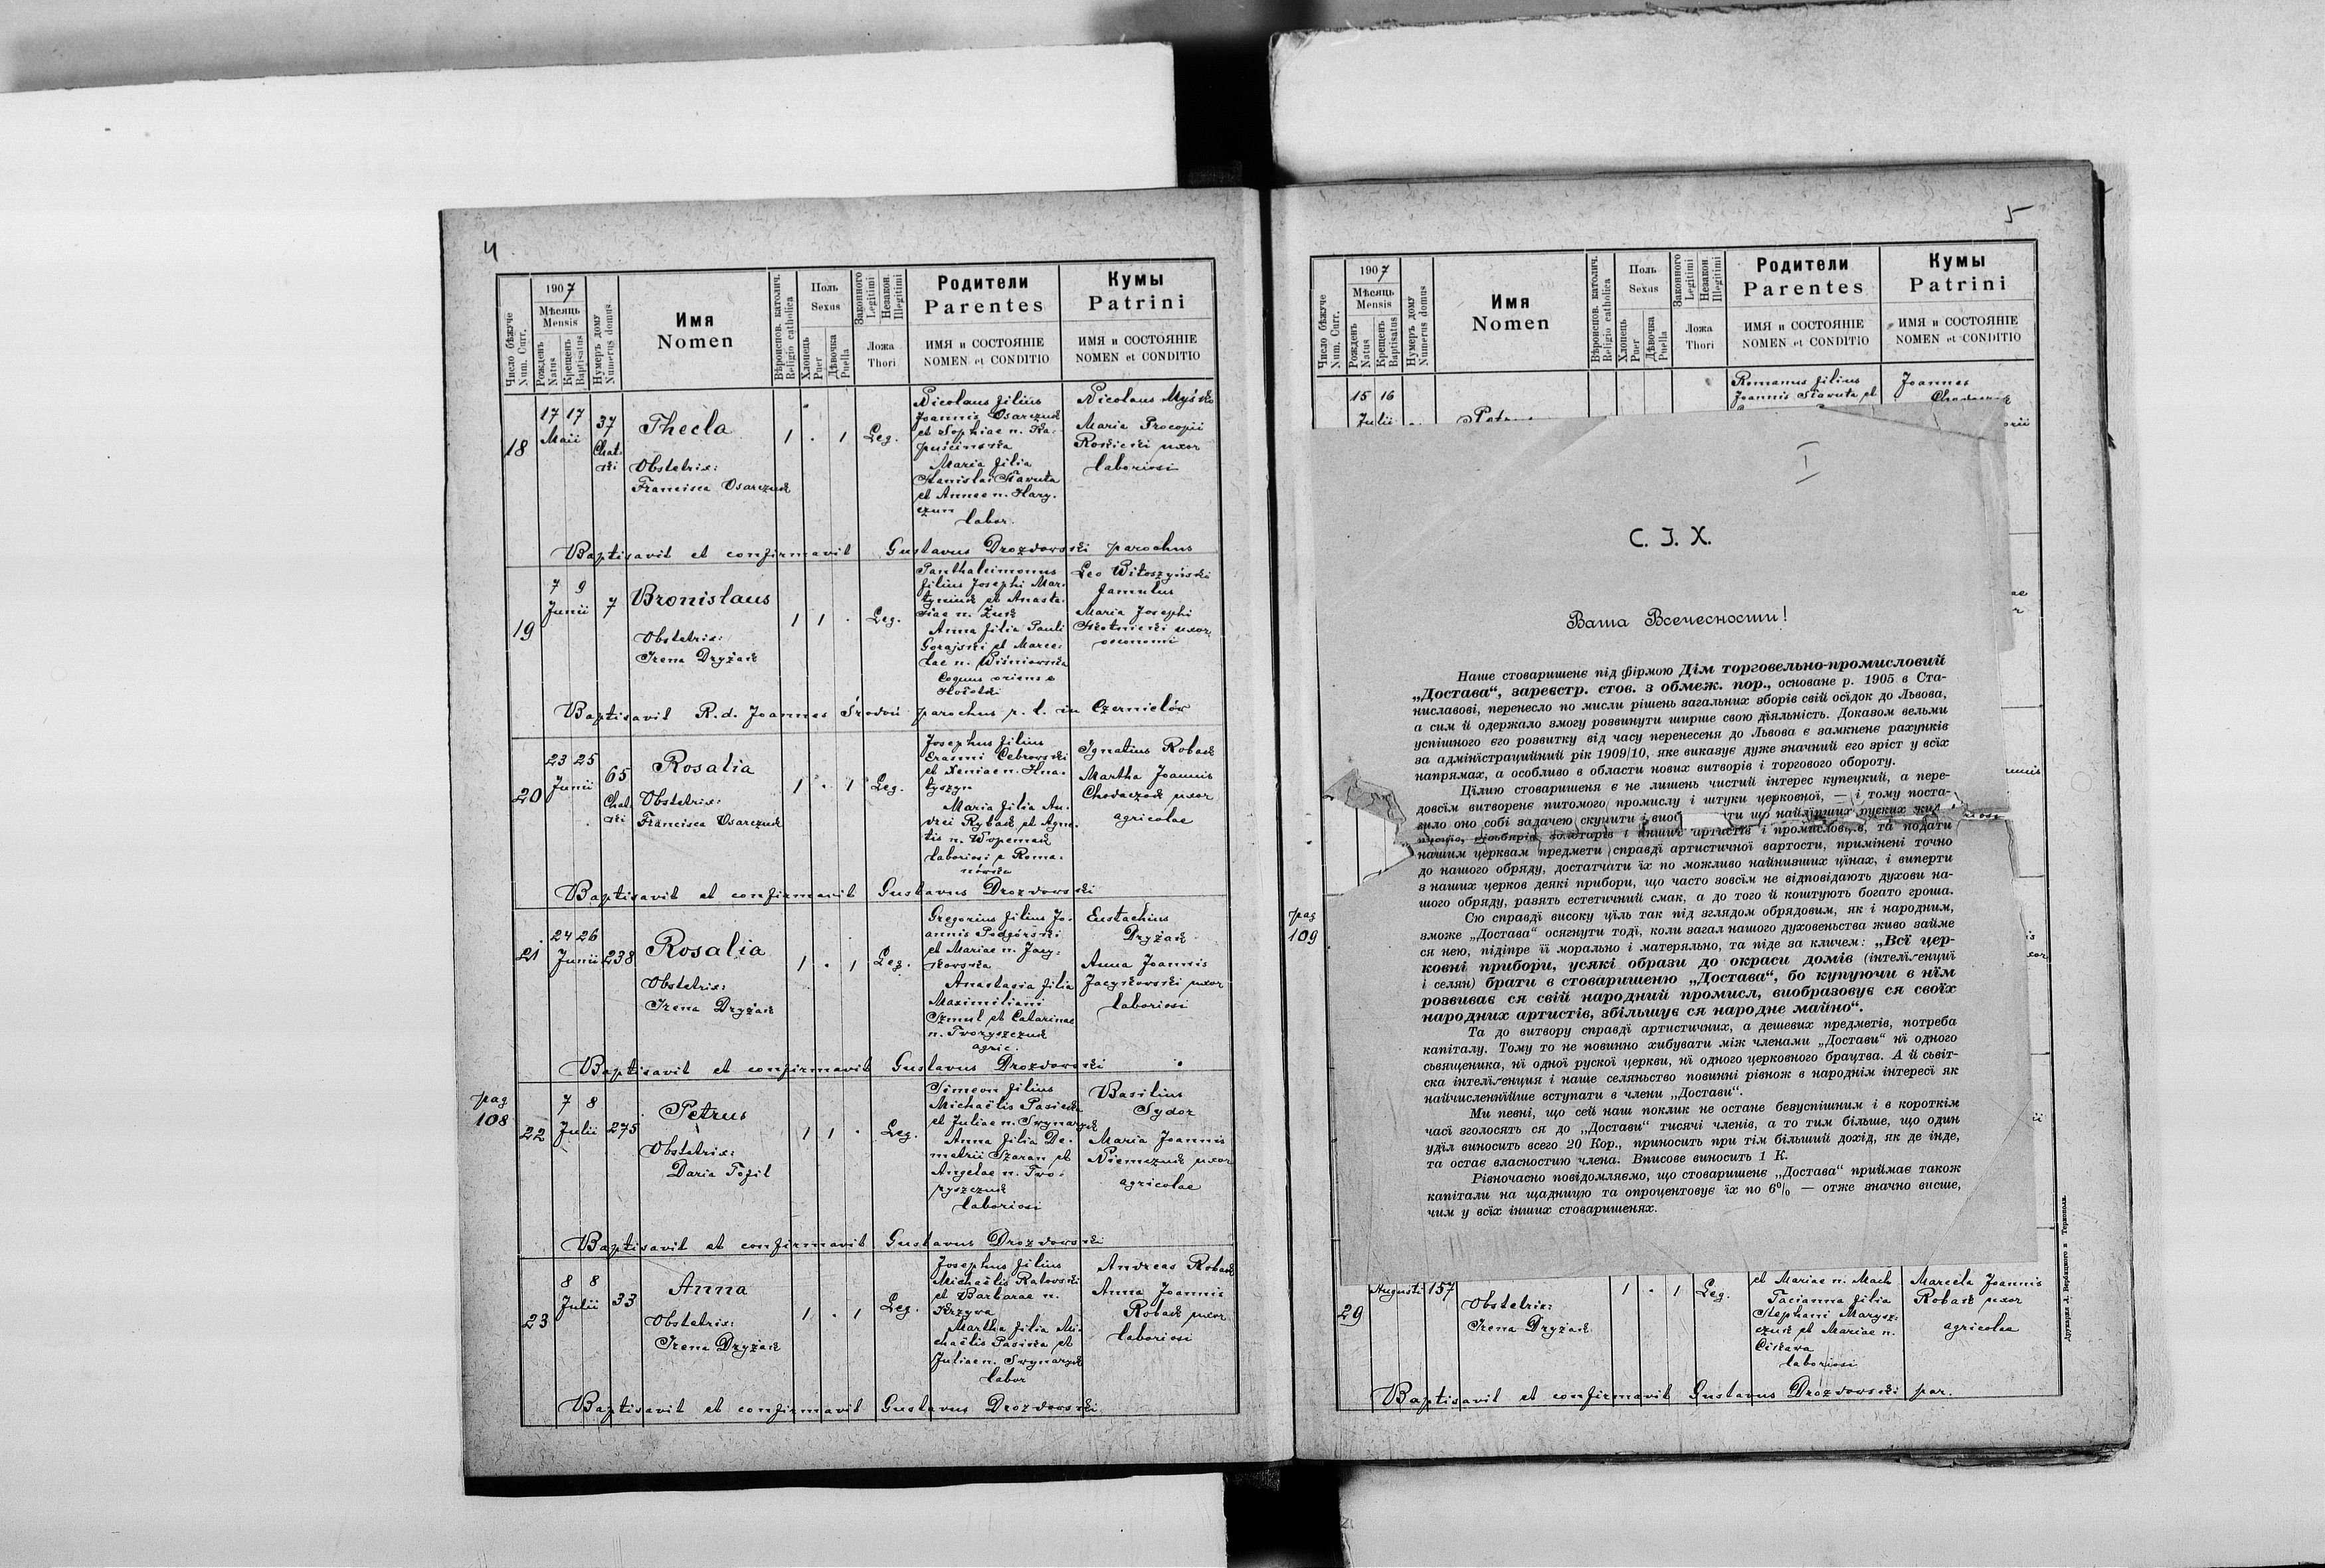 4
Число бѣжуче
Num. Curr.
1907
Мѣсяць
Mensis
Рожденъ
Natus
Крещенъ
Baptisatus
Нумеръ дому
Numerus domus
Имя
Nomen
Вѣроиспов. католич.
Religio catholica
Полъ
Sexus
Хлопець
Puer
Дѣвочка
Puella
Законного
Legitimi
Незакон.
Illegitimi
Ложа
Thori
Родители
Parentes
ИМЯ и СОСТОЯНІЕ
NOMEN et CONDITIO
Кумы
Patrini
ИМЯ и СОСТОЯНІЕ
NOMEN et CONDITIO
18
17 17
Maii
37
Chat-
ki
Thecla
Obstetrix:
Francisca Osarczuk
1 . 1 Leg.
Nicolaus filius
Joannis Osarczuk
et Sophiae n. Ka-
puścinska
Maria filia
Stanislai Skawuta
et Annae n. Hary-
czun
labor.
Nicolaus Myśko
Maria Procopii
Rosicki uxor
laboriosi
Baptisavit et confirmavit Gustavus Drozdowski parochus
19
7 9
Junii
7
Bronislaus
Obstetrix:
Irena Dryżak
1 1 . Leg.
Panthaleimonus
filius Josephi Mar-
tyniuk et Anasta-
siae n. Żuk
Anna filia Pauli
Gorajski et Marce-
lae n. Wiśniowska
Coquus oriens e
Leo Witoszyński
famulus
Maria Josephi
Skotnicki uxor
oeconomi
Baptisavit R.d. Joannes parochus r. l. in Czernielów
20
23 25
Junii
65
Chat
ki
Rosalia
Obstetrix:
Francisca Osarczuk
1 . 1 Leg.
Josephus filius
Erasmi Cebrowski
et Xeniae n. Hna-
tyszyn
Maria filia An-
drei Rybak et Agne-
tis n. Woremak
laboriosi e Roma-
nówka
Ignatius Robak
Martha Joannis
Chodaczok uxor
agricolae
Baptisavit et confirmavit Gustavus Drozdowski
21
24 26
Junii
238
Rosalia
Obstetrix:
Irena Dryżak
1 . 1 Leg.
Gregorius filius Jo-
annis Podgórski
et Mariae n. Jacy-
kowska
Anastasia filia
Maximiliani
Szmul et Catarinae
n. Tworyszczuk
agric.
Eustachius
Dryżak
Anna Joannis
Jacykowski uxor
laboriosi
Baptisavit et confirmavit Gustavus Drozdowski
pag
108
22
7 8
Julii
275
Petrus
Obstetrix:
Daria Tofil
1 1 . Leg.
Simeon filius
Michaëlis Pasieka
et Juliae n. Swynaryk
Anna filia De-
metrii Szaran et
Angelae n. Two-
ryszczuk
laboriosi
Basilius
Sydor
Maria Joannis
Niemczuk uxor
agricolae
Baptisavit et confirmavit Gustavus Drozdowski
23
8 8
Julii
33
Anna
Obstetrix:
Irena Dryżak
1 . 1 Leg.
Josephus filius
Michaëlis Ratowski
et Barbarae n.
Krzywa
Martha filia Mi-
chaëlis Pasieka et
Juliae n. Swynaryk
labor
Andreas Robak
Anna Joannis
Robak uxor
laboriosi
Baptisavit et confirmavit Gustavus Drozdowski
5
Число бѣжуче
Num. Curr.
1907
Мѣсяць
Mensis
Рожденъ
Natus
Крещенъ
Baptisatus
Нумеръ дому
Numerus domus
Имя
Nomen
Вѣроиспов. католич.
Religio catholica
Полъ
Sexus
Хлопець
Puer
Дѣвочка
Puella
Законного
Legitimi
Незакон.
Illegitimi
Ложа
Thori
Родители
Parentes
ИМЯ и СОСТОЯНІЕ
NOMEN et CONDITIO
Кумы
Patrini
ИМЯ и СОСТОЯНІЕ
NOMEN et CONDITIO
15 16
Julii
Romanus filius
Joannis Skawuta et
Joannes
I
С. І. Х.
Ваша Всечесности!
Наше стоваришенє під фірмою Дім торговельно-промисловий
„Достава“, зареєстр. стов. з обмеж. пор., основане р. 1905 в Ста-
ниславові, перенесло по мисли рішень загальних зборів свій осїдок до Львова,
а сим й одержало змогу розвинути ширше свою дїяльність. Доказом вельми
успішного єго розвитку від часу перенесеня до Львова є замкненє рахунків
за адмінїстрацийний рік 1909/10, яке виказує дуже значний єго зріст у всїх
напрямах, а особливо в области нових витворів і торгового обороту.
Цїлию стоваришеня є не лишень чистий інтерес купецкий, а пере-
довсїм витворенє питомого промислу і штуки церковної, — і тому поста-
вило оно собі задачею скупити і вио ти що найлїпших руских
золотарів і инших артистів і промислов та подати
нашим церквам предмети справдї артистичної вартости, приміненї точно
до нашого обряду, достатчати їх по можливо найнизших цїнах, і виперти
з наших церков деякі прибори, що часто зовсїм не відповідають духови на-
шого обряду, разять естетичний смак, а до того й коштують богато гроша.
Сю справдї високу цїль так під зглядом обрядовим, як і народним,
зможе „Достава“ осягнути тодї, коли загал нашого духовеньства живо займе
ся нею, підіпре її морально і матеряльно, та піде за кличем: „Всї цер-
ковні прибори, усякі образи до окраси домів (інтелїґенциї
і селян) брати в стоваришеню „Достава“, бо купуючи в нїм
розвиває ся свій народний промисл, виобразовує ся своїх
народних артистів, збільшує ся народне майно“.
Та до витвору справдї артистичних, а дешевих предметів, потреба
капіталу. Тому то не повинно хибувати між членами „Достави“ нї одного
сьвященика, нї одної рускої церкви, нї одного церковного брацтва. А й сьвіт-
ска інтелїґенция і наше селяньство повинні рівнож в народнїм інтересї як
найчисленнїйше вступати в члени „Достави“.
Ми певні, що сей наш поклик не остане безуспішним і в короткім
часї зголосять ся до „Достави“ тисячі членів, а то тим більше, що один
удїл виносить всего 20 Кор., приносить при тім більший дохід, як де інде,
та остає власностию члена. Вписове виносить 1 К.
Рівночасно повідомляємо, що стоваришенє „Достава“ приймає також
капітали на щадницю та опроцентовує їх по 6% — отже значно висше,
чим у всїх інших стоваришенях.
pag
109
29
Augusti
157
Obstetrix:
Irena Dryżak
1 . 1 Leg.
et Mariae n. Mach
Tacianna filia
Stephani Marysz-
czuk et Mariae n.
Ciskawa
laboriosi
Marcela Joannis
Robak uxor
agricolae
Baptisavit et confirmavit Gustavus Drozdowski par.